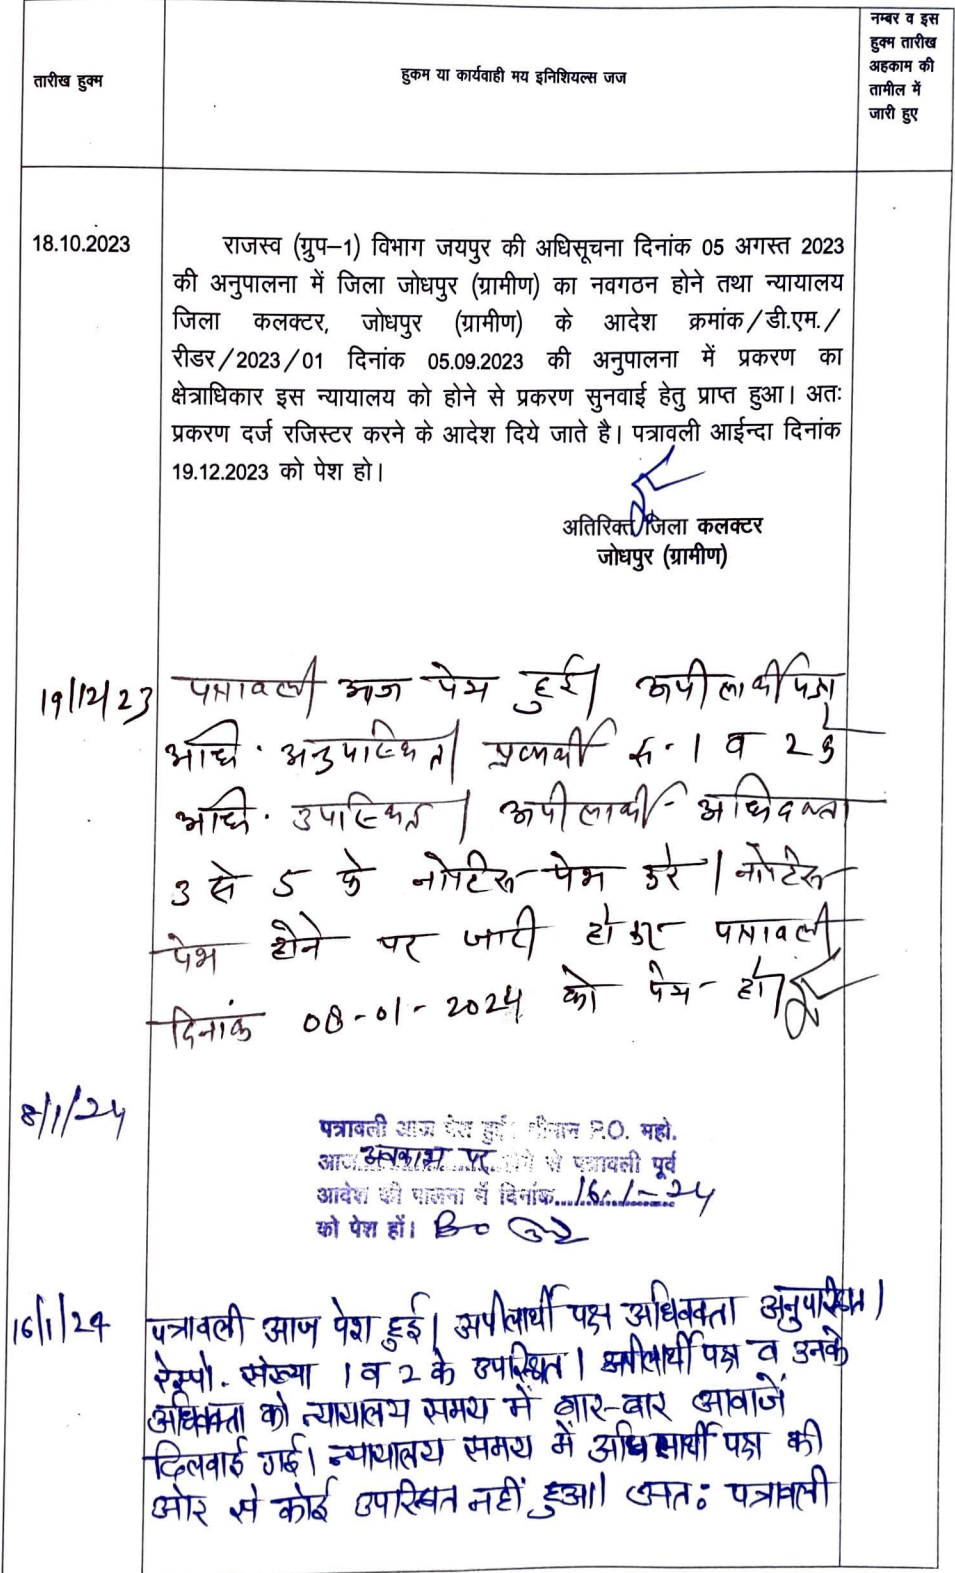 तारीख हुक्म
हुकम या कार्यवाही मय इनिशियल्स जज
नम्बर व इस
हुक्म तारीख
अहकाम की
तामील में
जारी हुए
18.10.2023
राजस्व (ग्रुप–1) विभाग जयपुर की अधिसूचना दिनांक 05 अगस्त 2023
की अनुपालना में जिला जोधपुर (ग्रामीण) का नवगठन होने तथा न्यायालय
जिला कलक्टर, जोधपुर (ग्रामीण) के आदेश क्रमांक/डी.एम./
रीडर/2023/01 दिनांक 05.09.2023 की अनुपालना में प्रकरण का
क्षेत्राधिकार इस न्यायालय को होने से प्रकरण सुनवाई हेतु प्राप्त हुआ। अतः
प्रकरण दर्ज रजिस्टर करने के आदेश दिये जाते है। पत्रावली आईन्दा दिनांक
19.12.2023 को पेश हो।
अतिरिक्त जिला कलक्टर
जोधपुर (ग्रामीण)
19/12/23 पत्रावली आज पेश हुई। अपीलार्थी पक्ष
अधि. अनुपस्थित। प्रत्यर्थी सं. 1 व 2 के
अधि. उपस्थित। अपीलार्थी अधिवक्ता
3 से 5 के नोटिस पेश करे। नोटिस
पेश होने पर जारी होकर पत्रावली
दिनांक 08-01-2024 को पेश हो।
8/1/24
पत्रावली आज पेश हुई। श्रीमान P.O. महो.
आज अवकाश पर होने से पत्रावली पूर्व
आदेश की पालना में दिनांक...16-1-24
को पेश हों।
16/1/24 पत्रावली आज पेश हुई। अपीलार्थी पक्ष अधिवक्ता अनुपस्थित।
रेस्पो. संख्या 1 व 2 के उपस्थित। अपीलार्थी पक्ष व उनके
अधिवक्ता को न्यायालय समय में बार-बार आवाजें
दिलवाई गई। न्यायालय समय में पक्ष की
ओर से कोई उपस्थित नहीं हुआ। अतः पत्रावली